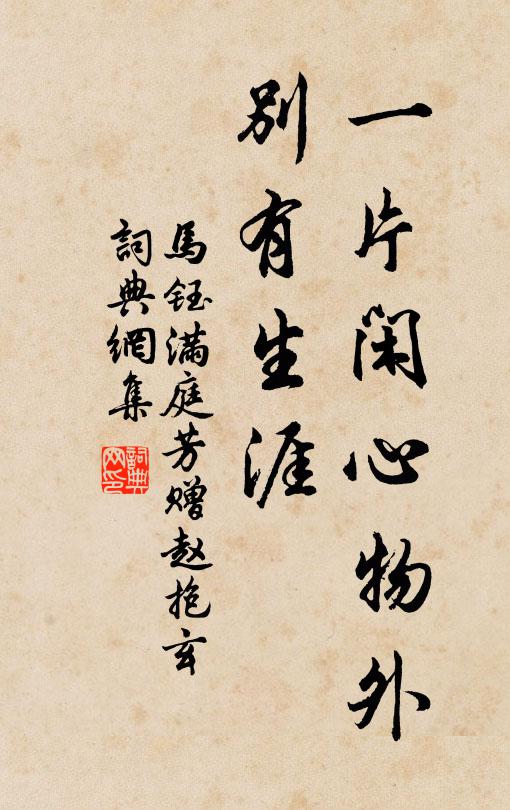 一片闲心物外
别有生涯
馬鈺满庭芳赠赵抱玄
詞典網集
詞典
网印